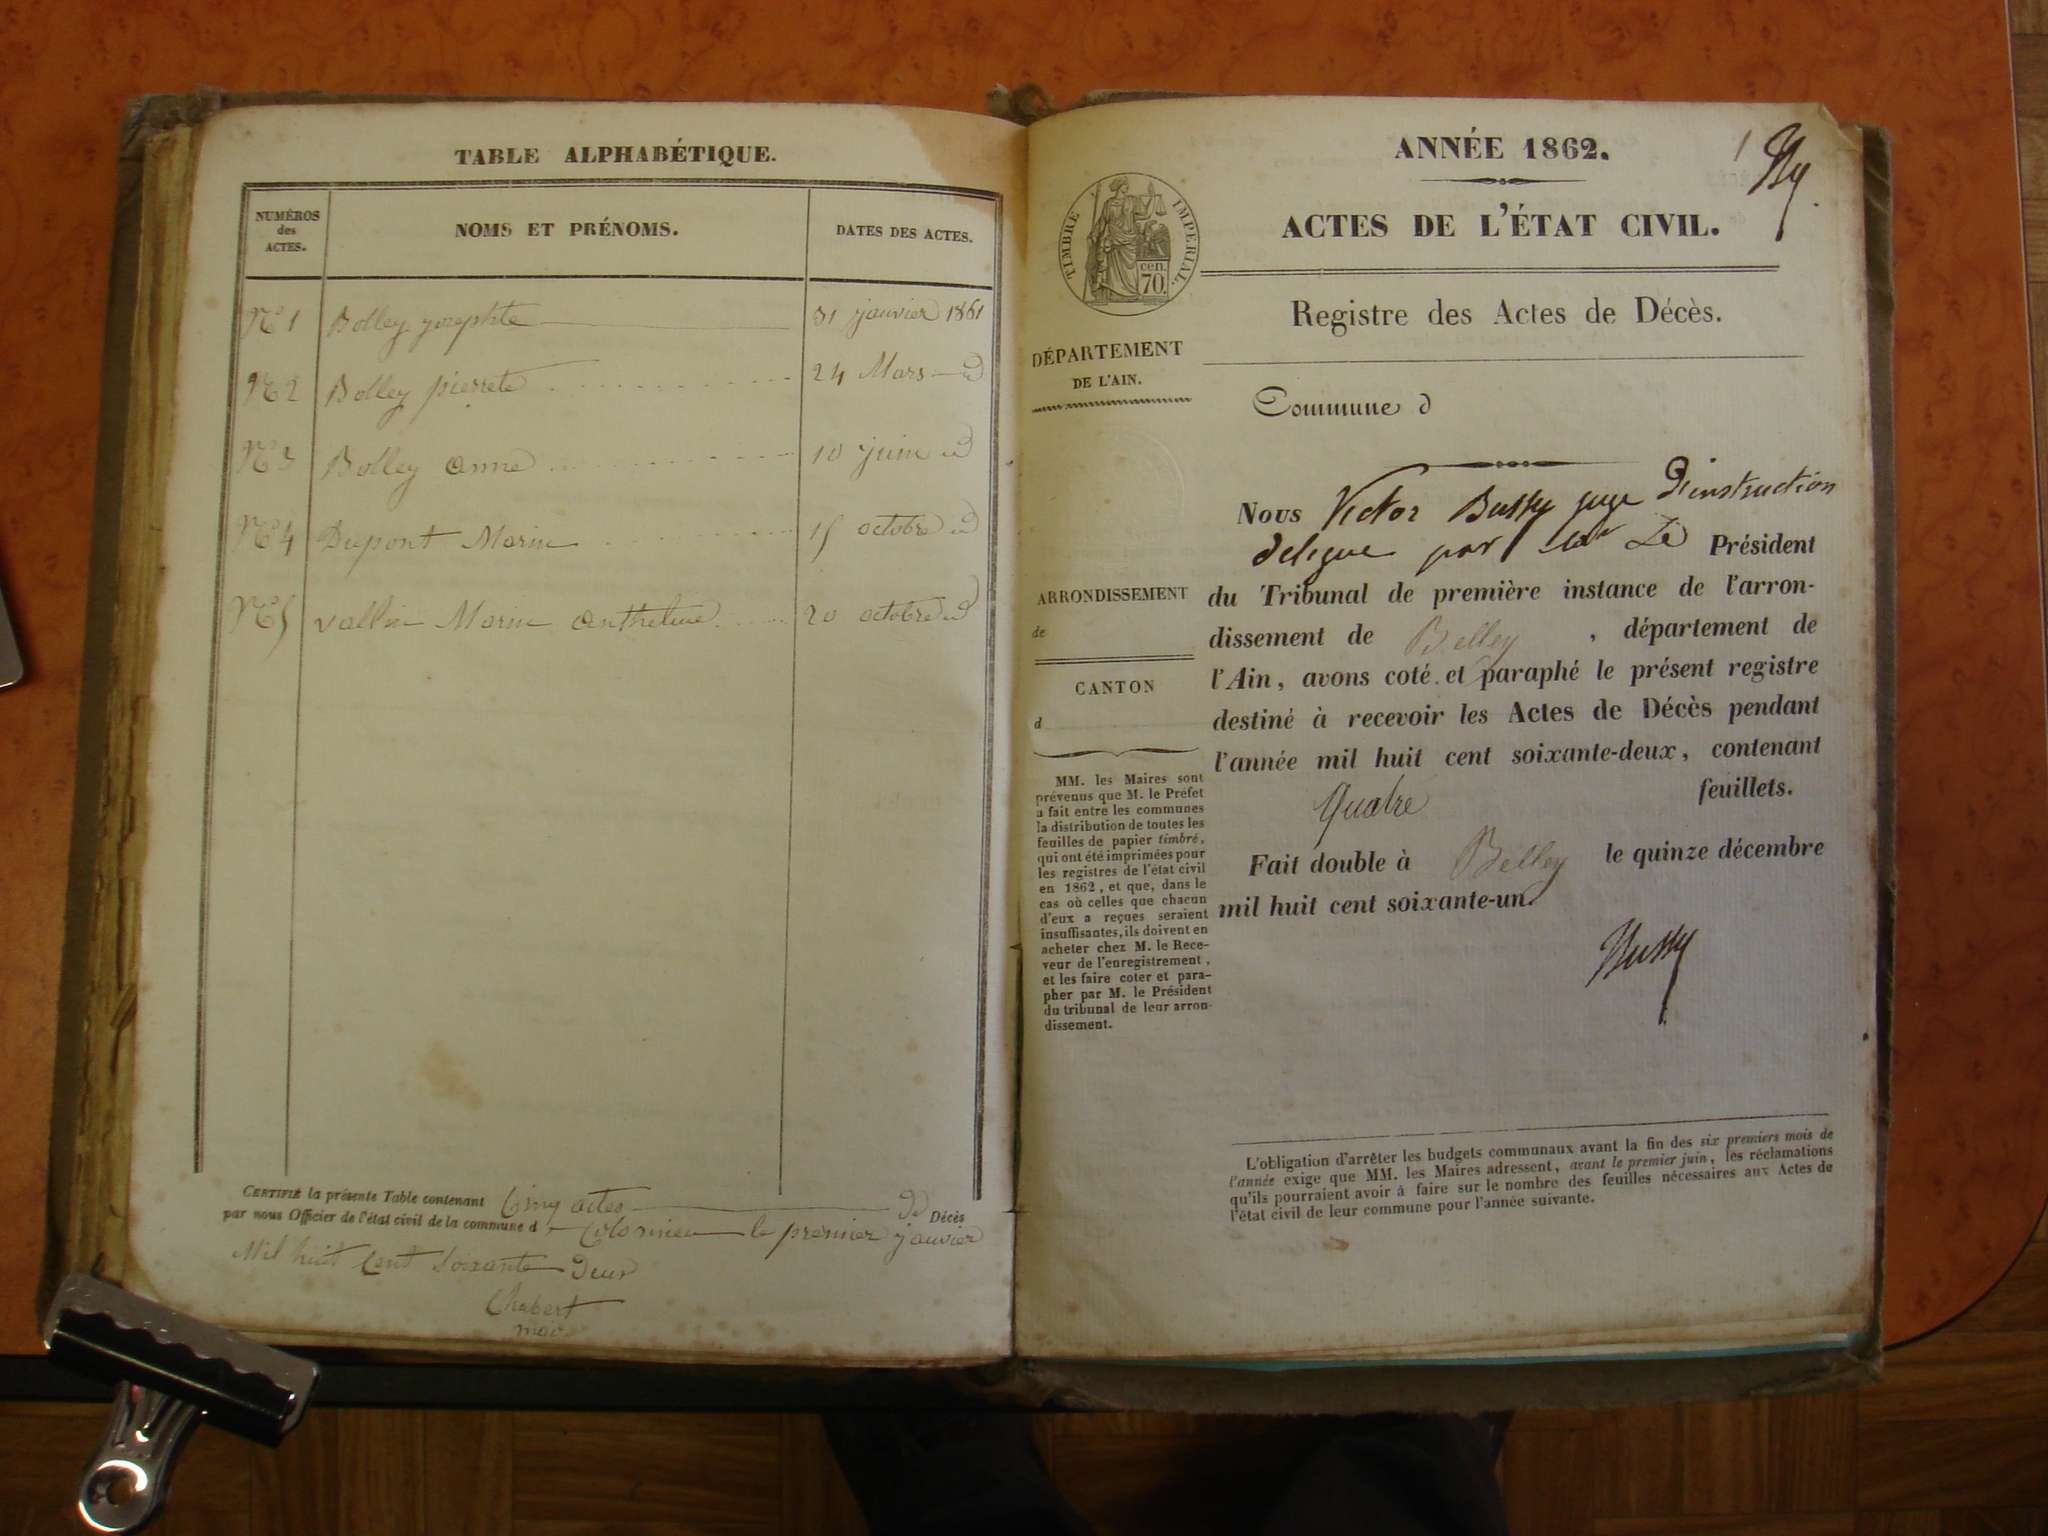 TABLE ALPHABÉTIQUE.
NUMÉROS des ACTES.
NOMS ET PRÉNOMS.
DATES DES ACTES.
N° 1 Bolley josephte 31 janvier 1861
N° 2 Bolley pierrete 24 Mars d
N° 3 Bolley anne 10 juin d
N° 4 Dupont Marie 15 octobre d
N° 5 Vallin Marie anthelme 20 octobre d
CERTIFIÉ la présente Table contenant Cinq actes de Décès
par nous Officier de l'état civil de la commune d Colomieu le premier janvier
Mil huit Cent Soixante Deux
Chabert
maire
1
ANNÉE 1862.
TIMBRE IMPÉRIAL.
cen. 70.
ACTES DE L'ÉTAT CIVIL.
Registre des Actes de Décès.
DÉPARTEMENT
DE L'AIN.
Commune d
Nous Victor Bussy juge D'instruction
délégué par Le Président
du Tribunal de première instance de l'arron-
dissement de Belley, département de
l'Ain, avons coté et paraphé le présent registre
destiné à recevoir les Actes de Décès pendant
l'année mil huit cent soixante-deux, contenant
Quatre feuillets.
Fait double à Belley le quinze décembre
mil huit cent soixante-un.
Bussy
ARRONDISSEMENT
de
CANTON
d
MM. les Maires sont
prévenus que M. le Préfet
a fait entre les communes
la distribution de toutes les
feuilles de papier timbré,
qui ont été imprimées pour
les registres de l'état civil
en 1862, et que, dans le
cas où celles que chacun
d'eux a reçues seraient
insuffisantes, ils doivent en
acheter chez M. le Rece-
veur de l'enregistrement,
et les faire coter et para-
pher par M. le Président
du tribunal de leur arron-
dissement.
L'obligation d'arrêter les budgets communaux avant la fin des six premiers mois de
l'année exige que MM. les Maires adressent, avant le premier juin, les réclamations
qu'ils pourraient avoir à faire sur le nombre des feuilles nécessaires aux Actes de
l'état civil de leur commune pour l'année suivante.